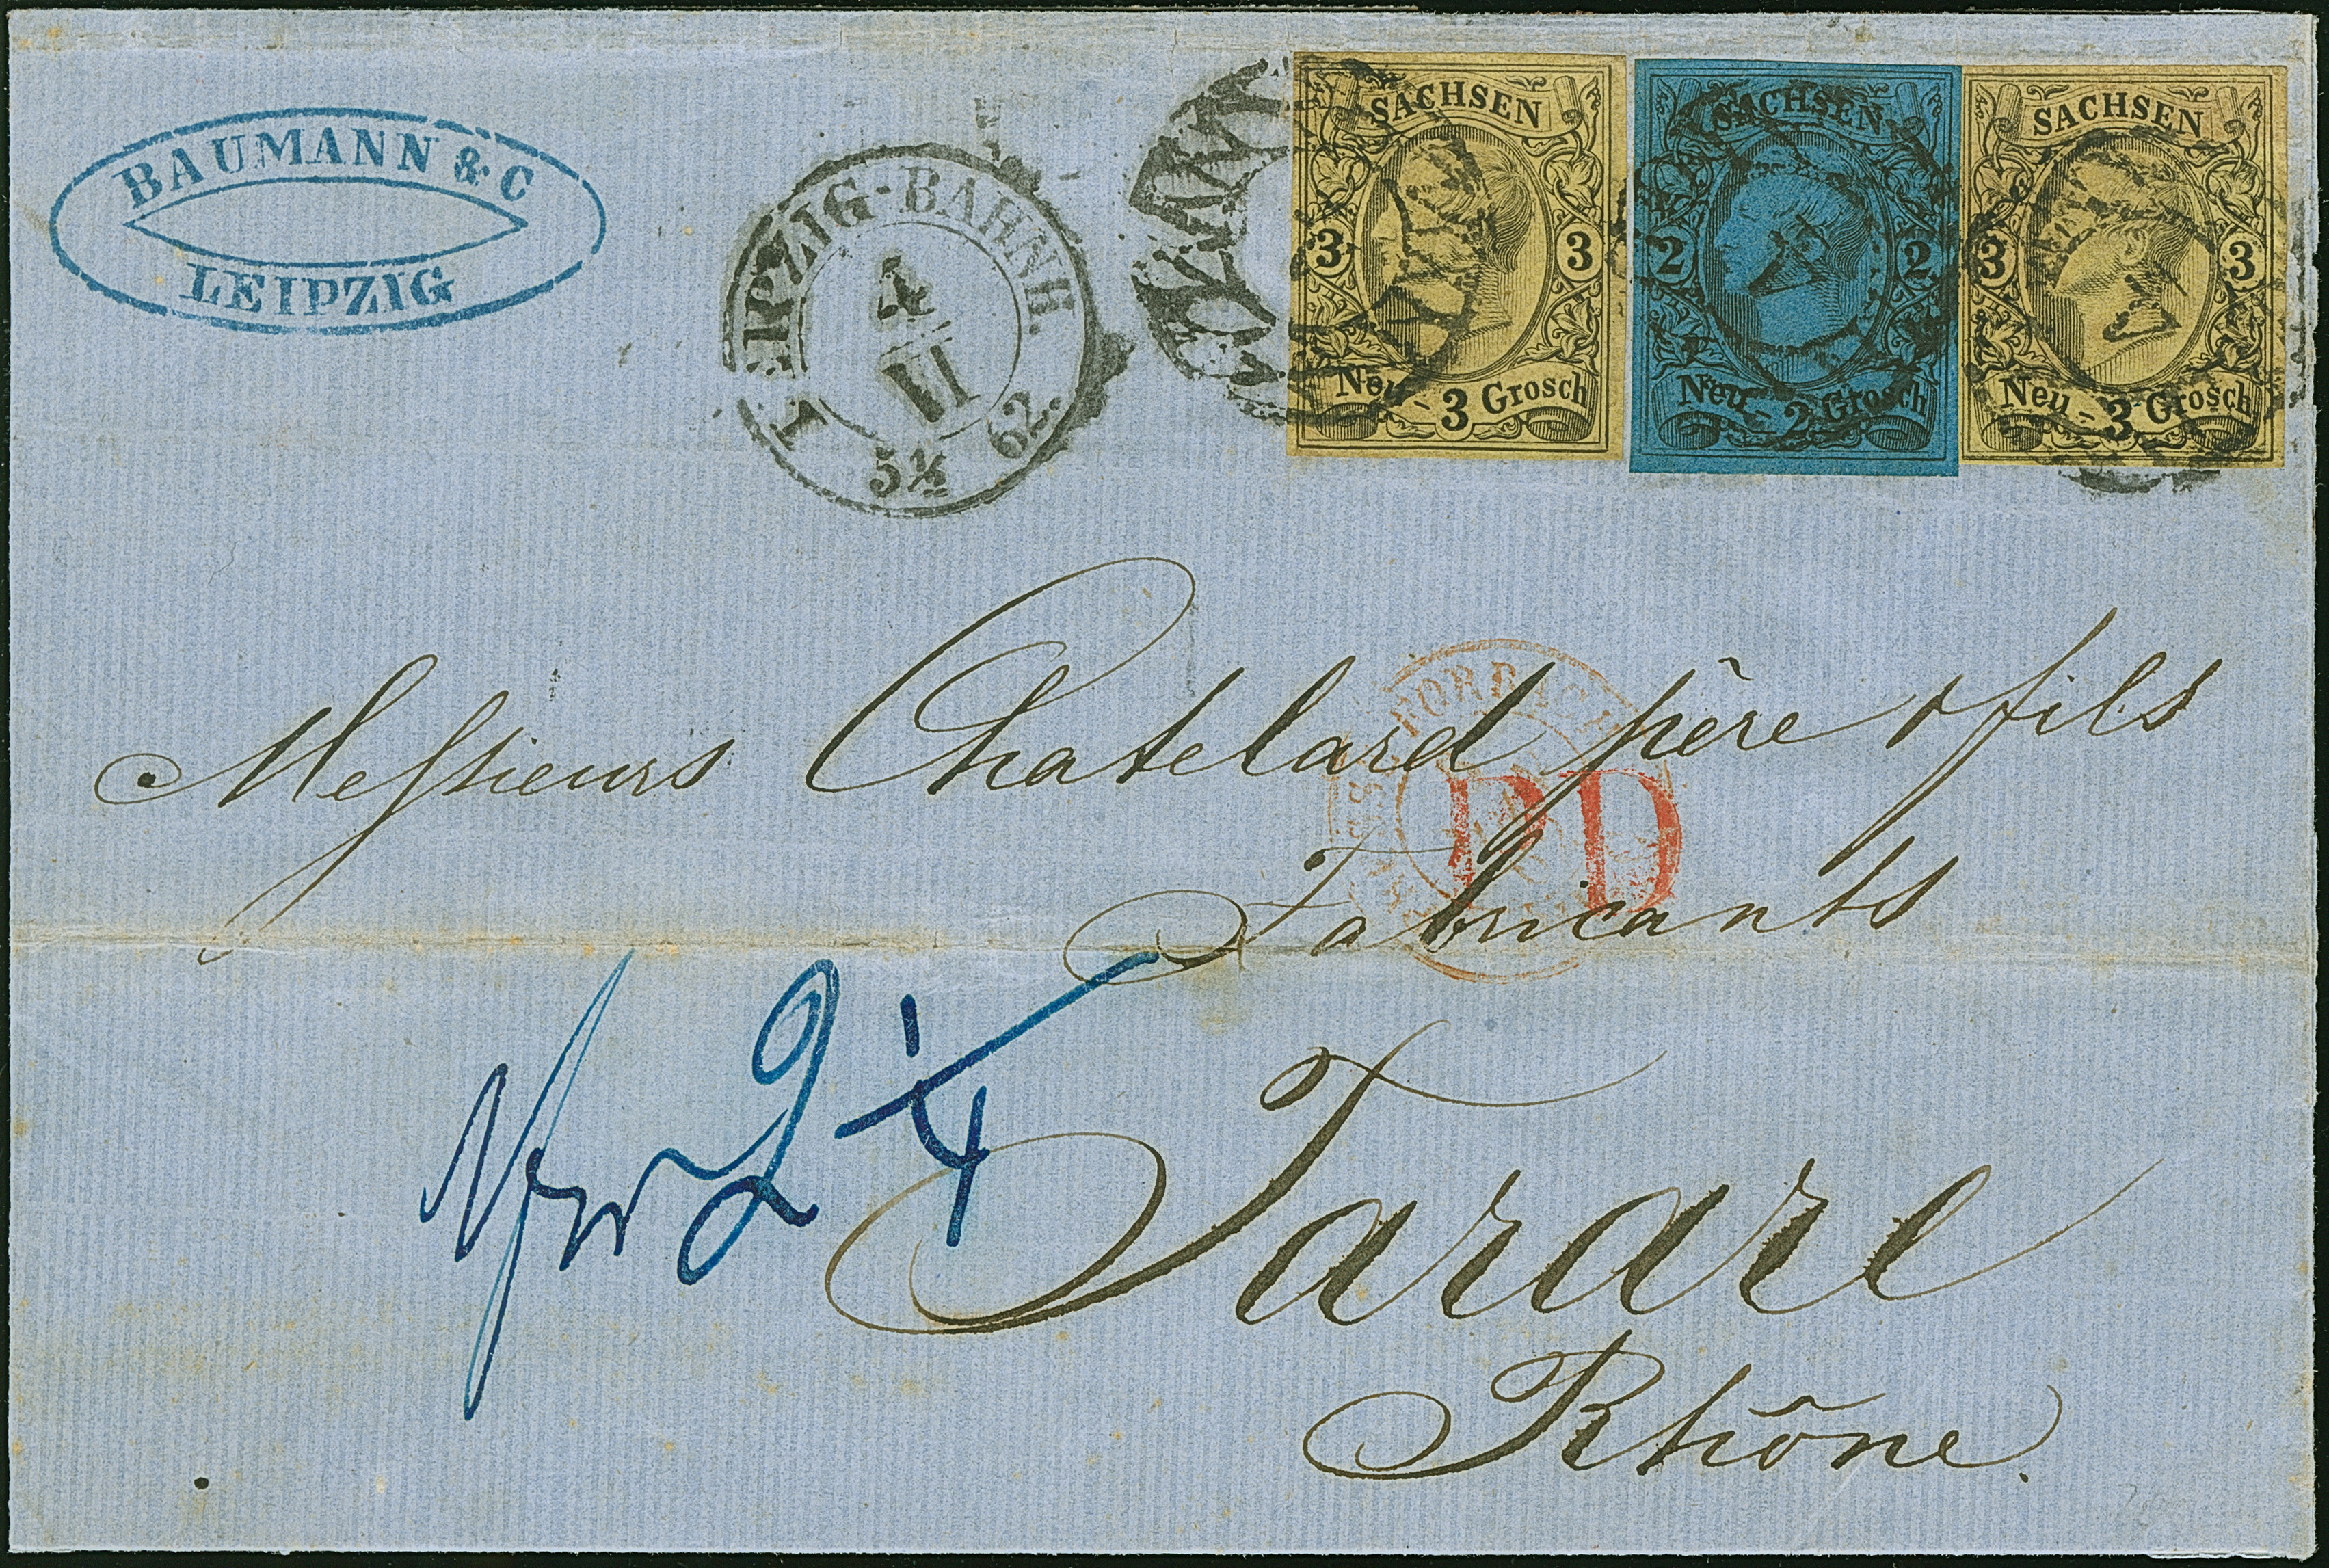 BAUMANN & C
LEIPZIG
LEIPZIG-BAHNH.
4
VI
5½
62.
SACHSEN
3 3
Neu-3 Grosch
SACHSEN
2 2
Neu-2 Grosch
SACHSEN
3 3
Neu-3 Grosch
FORBACH
PD
Messieurs Chatelard père & fils
Fabricants
Tarare
Rhône.
2 1/4